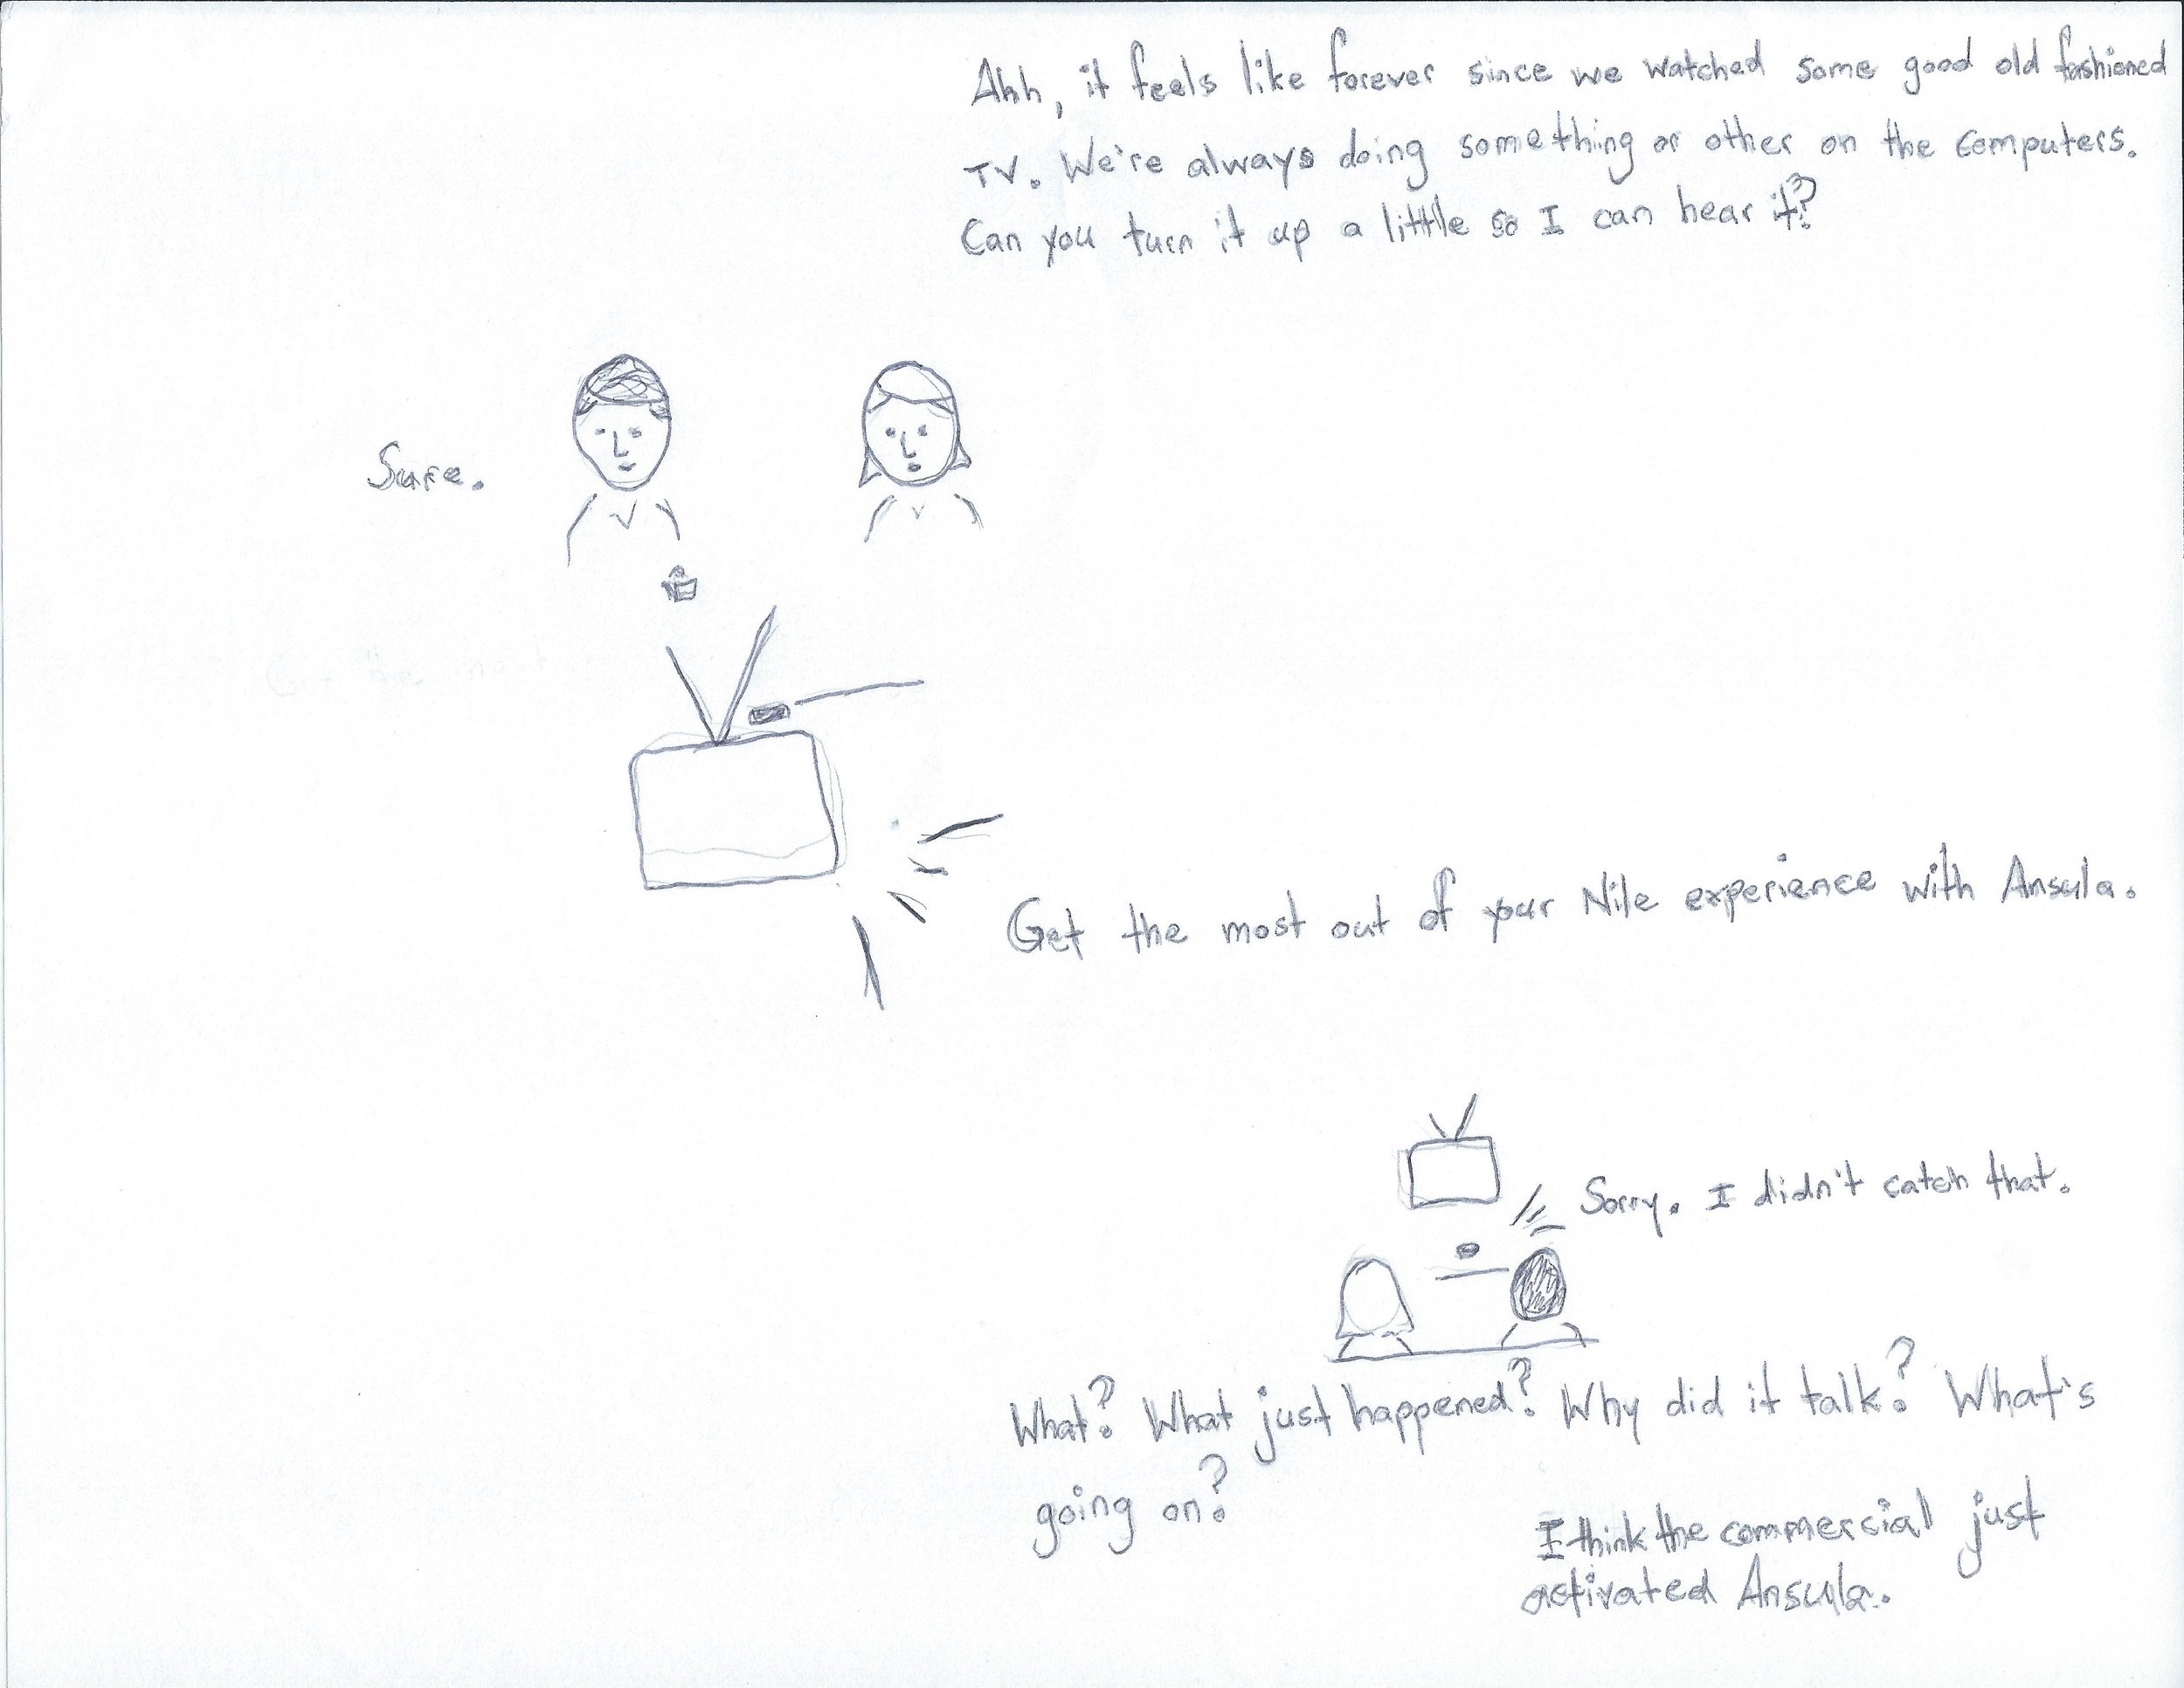 Ahh, it feels like forever since we watched some good old fashioned
TV. We're always doing something or other on the computers.
Can you turn it up a little so I can hear it?
Sure.
Get the most out of your Nile experience with Ansula.
Sorry. I didn't catch that.
What? What just happened? Why did it talk? What's
going on?
I think the commercial just
activated Ansula.